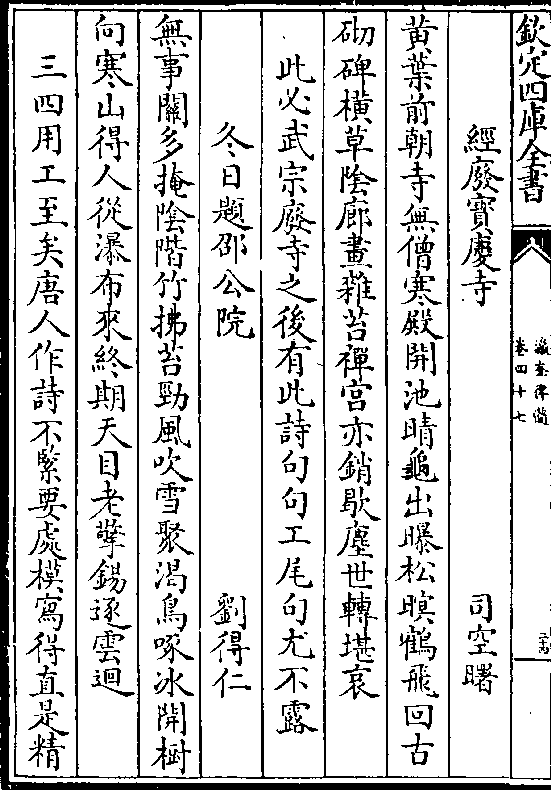 欽定四庫全書
瀛奎律髓
卷四十七
經廢寶慶寺　司空曙
黄葉前朝寺無僧寒殿開池晴龜出曝松暝鶴飛回古
砌碑橫草陰廊畫雜苔禪宫亦銷歇塵世轉堪哀
此必武宗廢寺之後有此詩句句工尾句尤不露
冬日題邵公院　劉得仁
無事關多掩陰階竹拂苔勁風吹雪聚渴鳥啄冰開樹
向寒山得人從瀑布來終期天目老擎錫逐雲迴
三四用工至矣唐人作詩不緊要處模寫得直是精